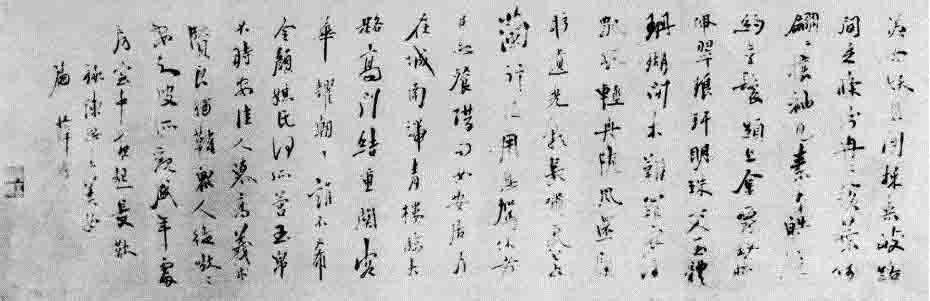 美女妖且閑採桑歧路
間柔條紛冉冉落葉何
翩翩攘袖見素手皓腕
約金環頭上金爵釵腰
佩翠琅玕明珠交玉體
珊瑚間木難羅衣何
飄颻輕裾隨風還顧
盼遺光彩長嘯氣若
蘭行徒用息駕休者
以忘餐借問女安居乃
在城南端青樓臨大
路高門結重關容
華耀朝日誰不希
令顏媒氏何所營玉帛
不時安佳人慕高義求
賢良獨難眾人徒嗷嗷
安知彼所觀盛年處
房室中夜起長歎
錄陳思王美女
篇